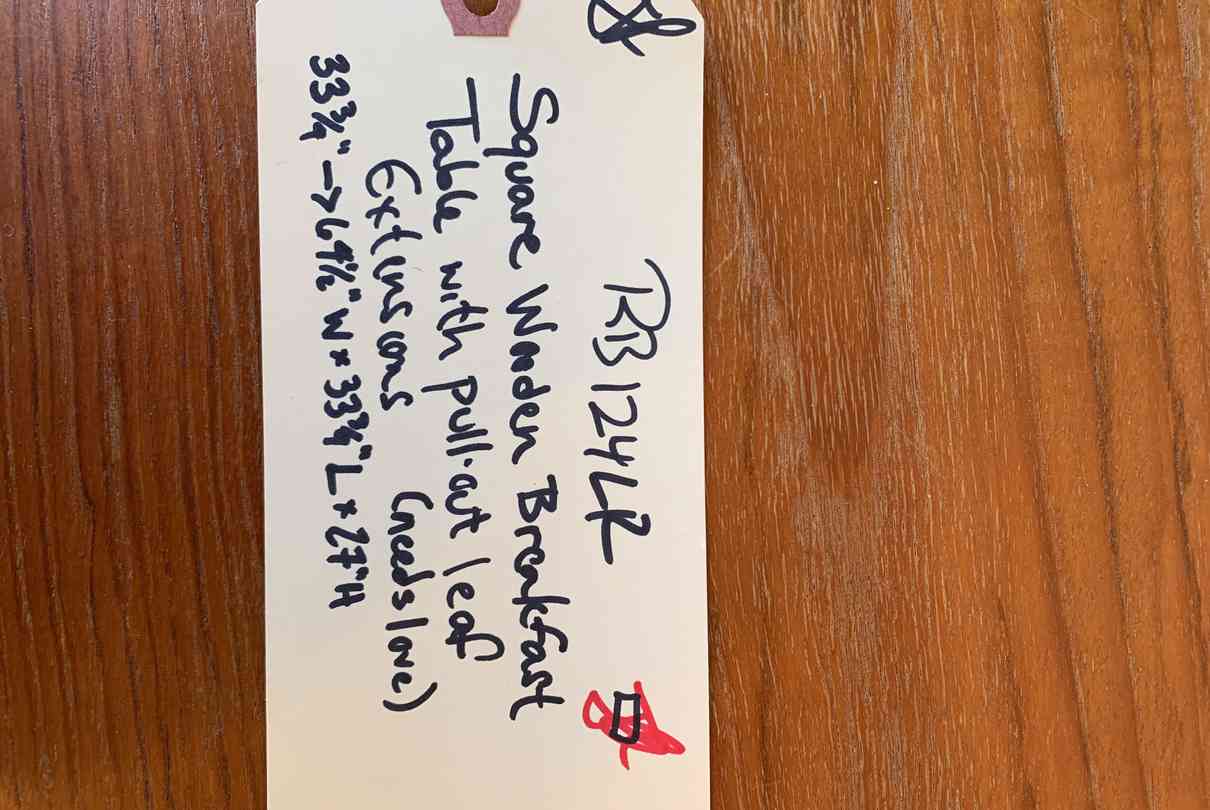 RB124LR
Square Wooden Breakfast
Table with pull-out leaf
Extensions (needs love)
33¾" → 64½" W x 33¾" L x 27" H